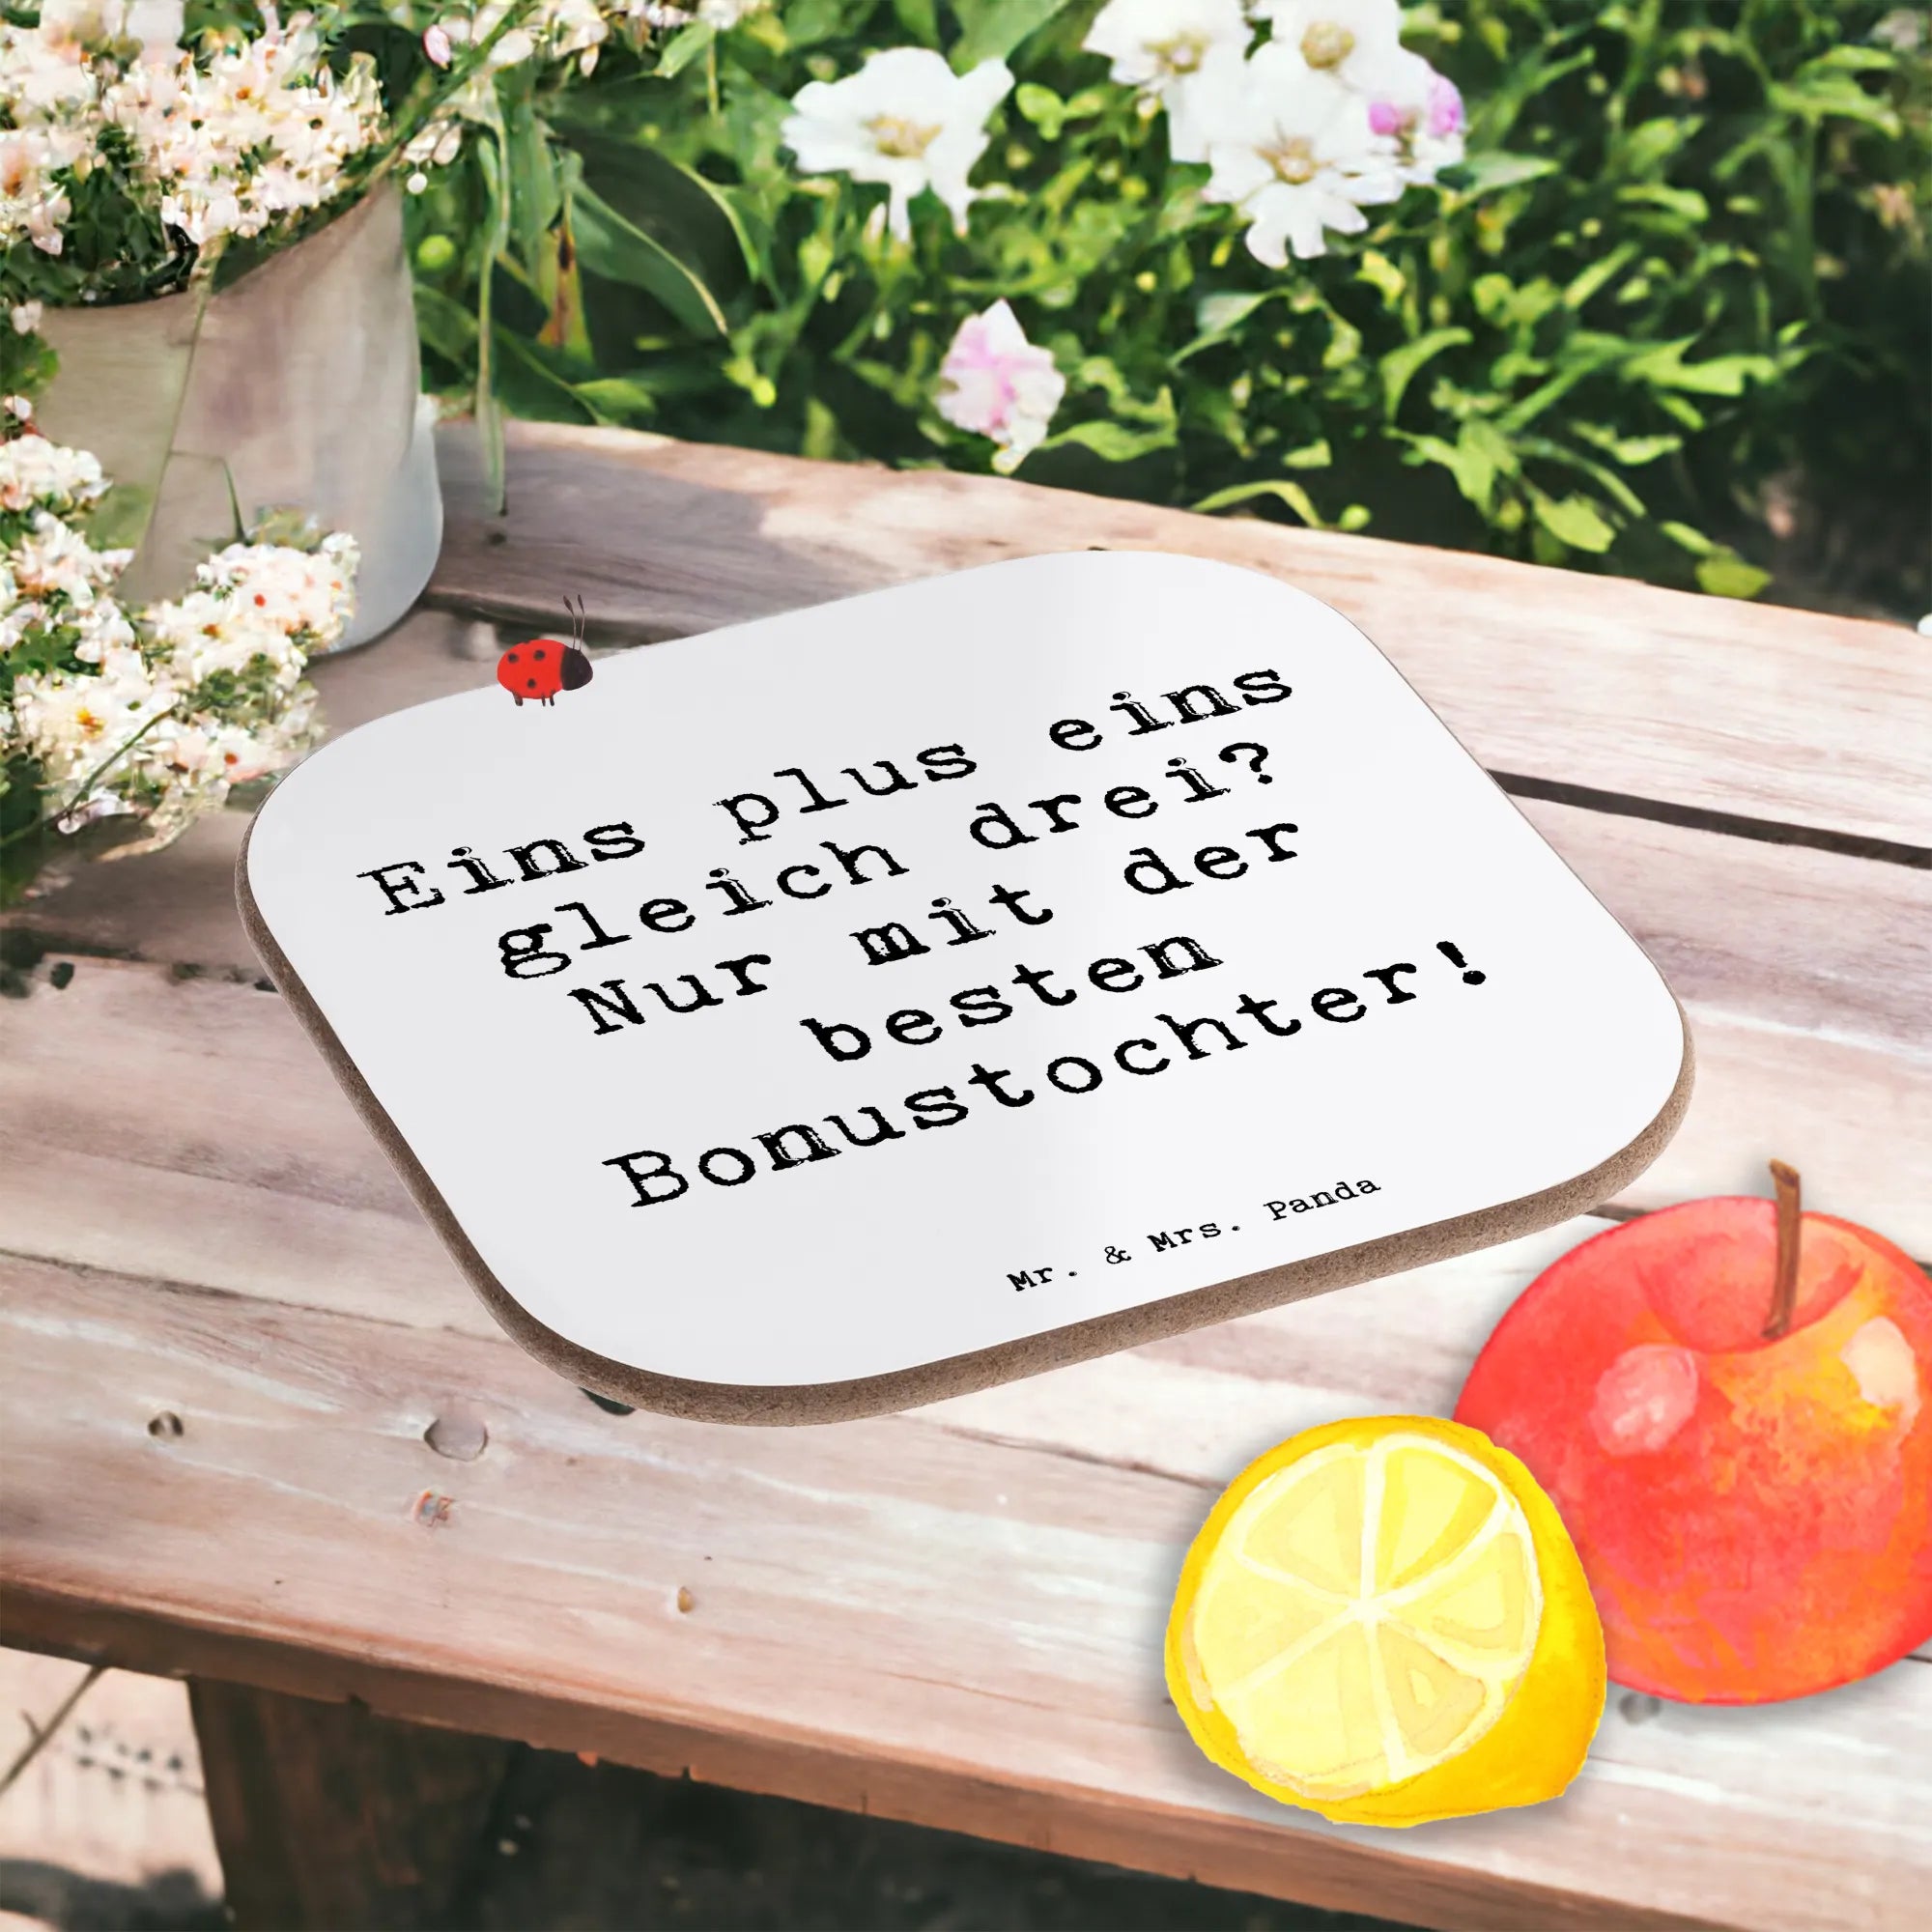 Eins plus eins
gleich drei?
Nur mit der
besten
Bonustochter!
Mr. & Mrs. Panda